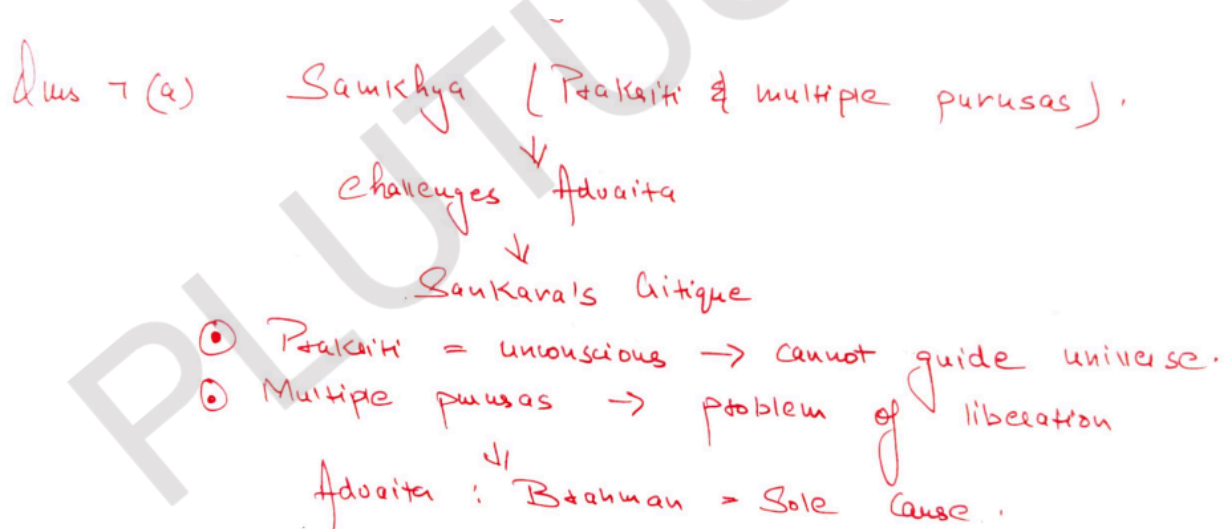 Ans 7 (a) Samkhya (Prakriti & multiple purusas).
↓
Challenges Advaita
↓
Sankara's Critique
⊙ Prakriti = unconscious → cannot guide universe.
⊙ Multiple purusas → problem of liberation
↓
Advaita : Brahman = Sole Cause.
PLUTU